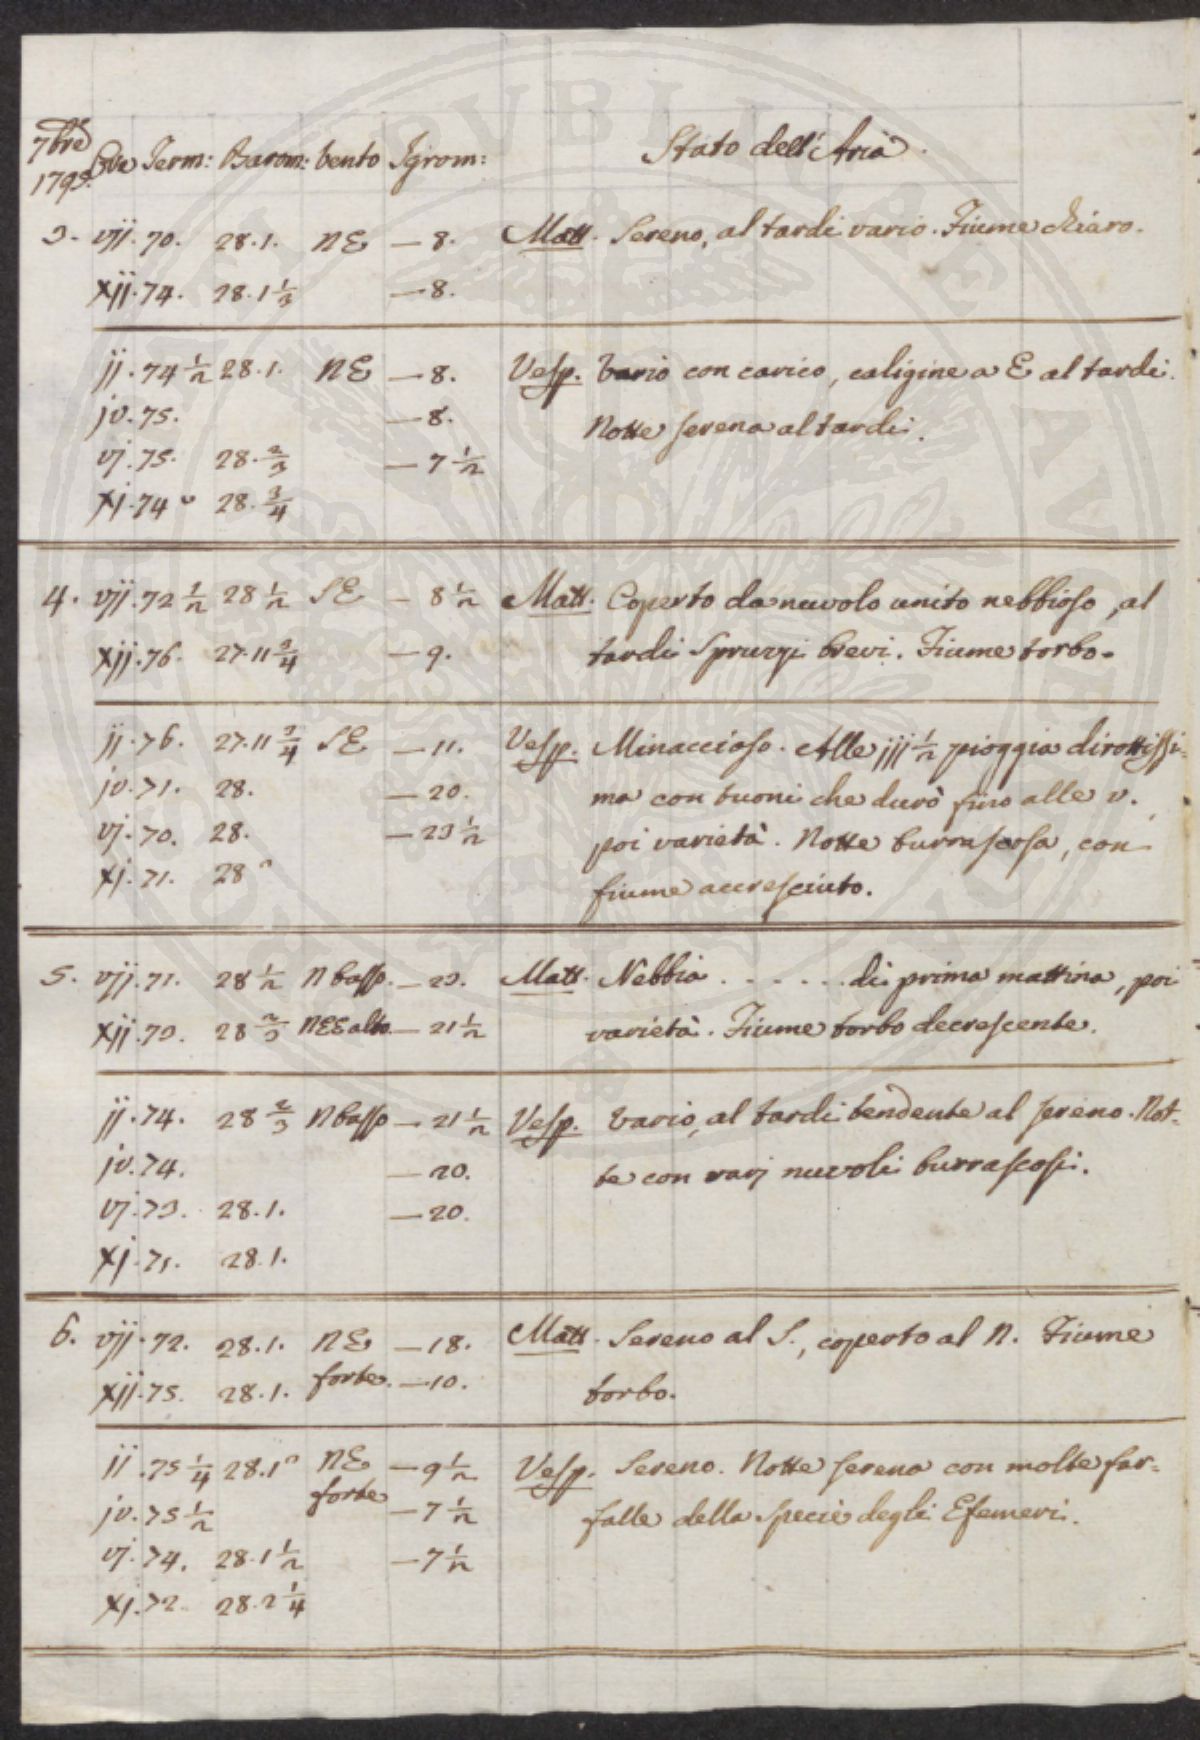 7bre
1795. Ore Term: Barom: Vento Igrom: Stato dell'Aria.
3. vij. 70. 28.1. NE — 8. Matt. Sereno, al tardi vario. Fiume chiaro.
xij. 74. 28.1 1/3 — 8.
ij. 74 1/2 28.1. NE — 8. Vesp. Vario con carico, caligine a E al tardi.
iv. 75. — 8. Notte serena al tardi.
vj. 75. 28. 2/3 — 7 1/2
xj. 74 28. 3/4
4. vij. 72 1/2 28 1/2 SE — 8 1/2 Matt. Coperto da nuvolo unito nebbioso, al
xij. 76. 27.11 3/4 — 9. tardi spruzzi brevi. Fiume torbo.
ij. 76. 27.11 3/4 SE — 11. Vesp. Minaccioso. Alle iij 1/2 pioggia dirottissi-
iv. 71. 28. — 20. ma con tuoni che durò fino alle v.,
vj. 70. 28. — 23 1/2 poi varietà. Notte burrascosa, con
xj. 71. 28 fiume accresciuto.
5. vij. 71. 28 1/2 N basso — 23. Matt. Nebbia . . . . . . di prima mattina, poi
xij. 73. 28 2/3 NEE alto — 21 1/2 varietà. Fiume torbo decrescente.
ij. 74. 28 2/3 N basso — 21 1/2 Vesp. Vario, al tardi tendente al sereno. Not-
iv. 74. — 20. te con varj nuvoli burrascosi.
vj. 73. 28.1. — 20.
xj. 71. 28.1.
6. vij. 72. 28.1. NE — 18. Matt. Sereno al S., coperto al N. Fiume
xij. 75. 28.1. forte. — 10. torbo.
ij. 75 1/4 28.1 NE — 9 1/2 Vesp. Sereno. Notte serena con molte far-
iv. 75 1/2 forte — 7 1/2 falle della specie degli Efemeri.
vj. 74. 28.1 1/2 — 7 1/2
xj. 72. 28.2 1/4